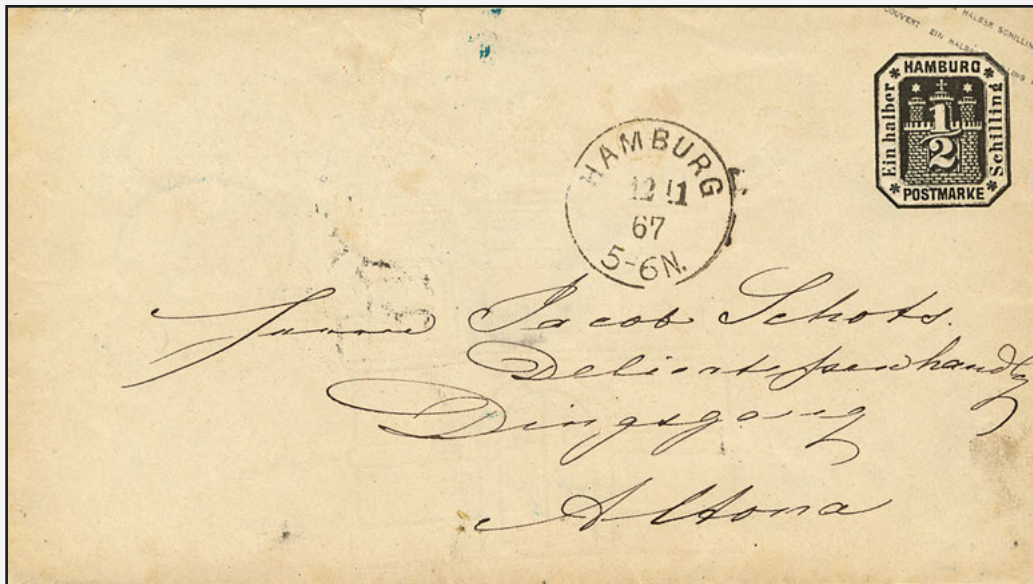 HALBER SCHILLING
COUVERT EIN HALBER SCHILLING
HAMBURG
Ein halber
1/2
Schilling
POSTMARKE
HAMBURG
12 11
67
5-6N.
Jacob Schots.
Delicatessenhandlg
Dingsgang
Altona